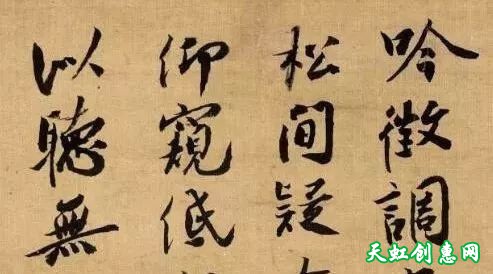 吟徵調
松間疑
仰窺低
以聽無
天虹创惠网